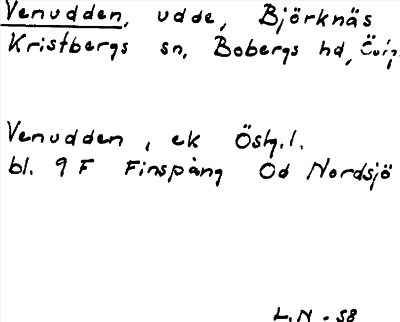 Venudden, udde, Björknäs
Kristbergs sn, Bobergs hd,
Venudden, ek Östg.l.
bl. 9 F Finspång Od Nordsjö
L.N - 58